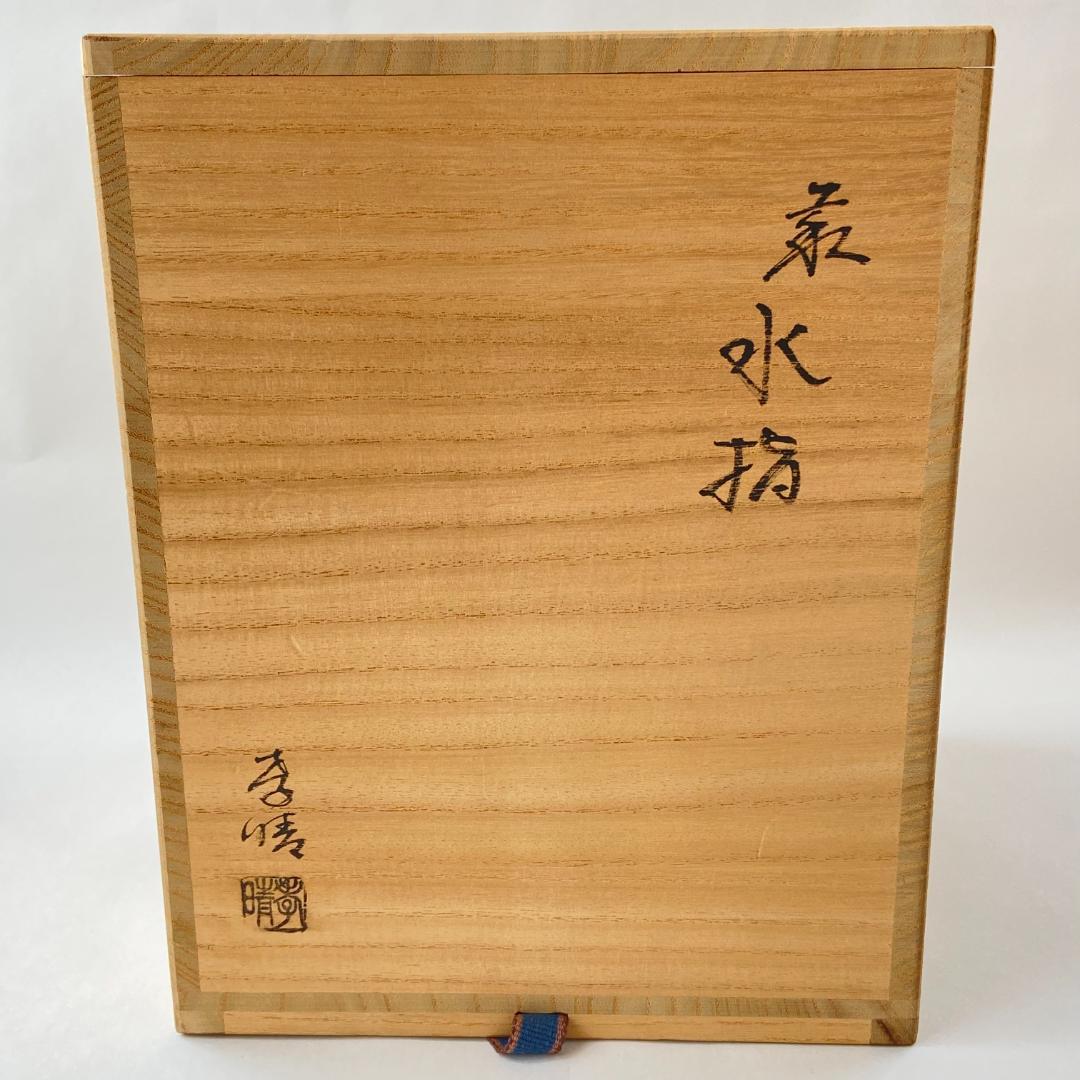 叢水指
孝晴
孝晴